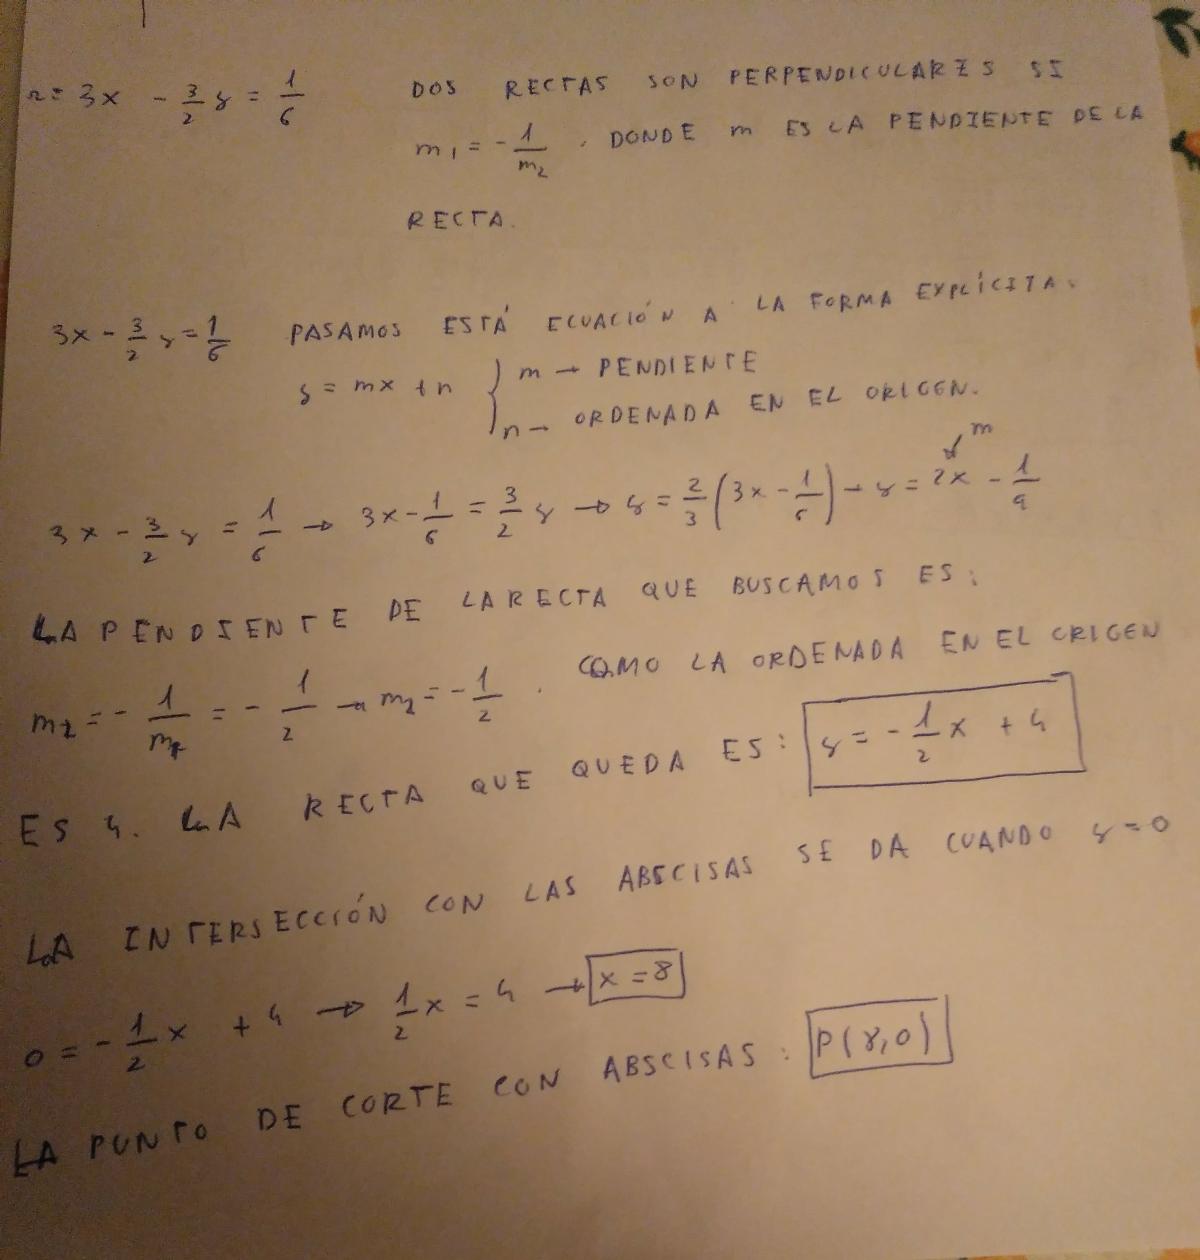 r: 3x - 3/2 y = 1/6 DOS RECTAS SON PERPENDICULARES SI
m1 = - 1/m2 . DONDE m ES LA PENDIENTE DE LA
RECTA.
3x - 3/2 y = 1/6 PASAMOS ESTÁ ECUACIÓN A LA FORMA EXPLÍCITA.
y = mx + n { m → PENDIENTE
n → ORDENADA EN EL ORIGEN.
m
3x - 3/2 y = 1/6 → 3x - 1/6 = 3/2 y → y = 2/3 (3x - 1/6) → y = 2x - 1/9
LA PENDIENTE DE LA RECTA QUE BUSCAMOS ES:
m2 = - 1/m1 = - 1/2 → m2 = - 1/2 . COMO LA ORDENADA EN EL ORIGEN
ES 4. LA RECTA QUE QUEDA ES: y = - 1/2 x + 4
LA INTERSECCIÓN CON LAS ABSCISAS SE DA CUANDO y = 0
0 = - 1/2 x + 4 → 1/2 x = 4 → x = 8
LA PUNTO DE CORTE CON ABSCISAS: P(8,0)